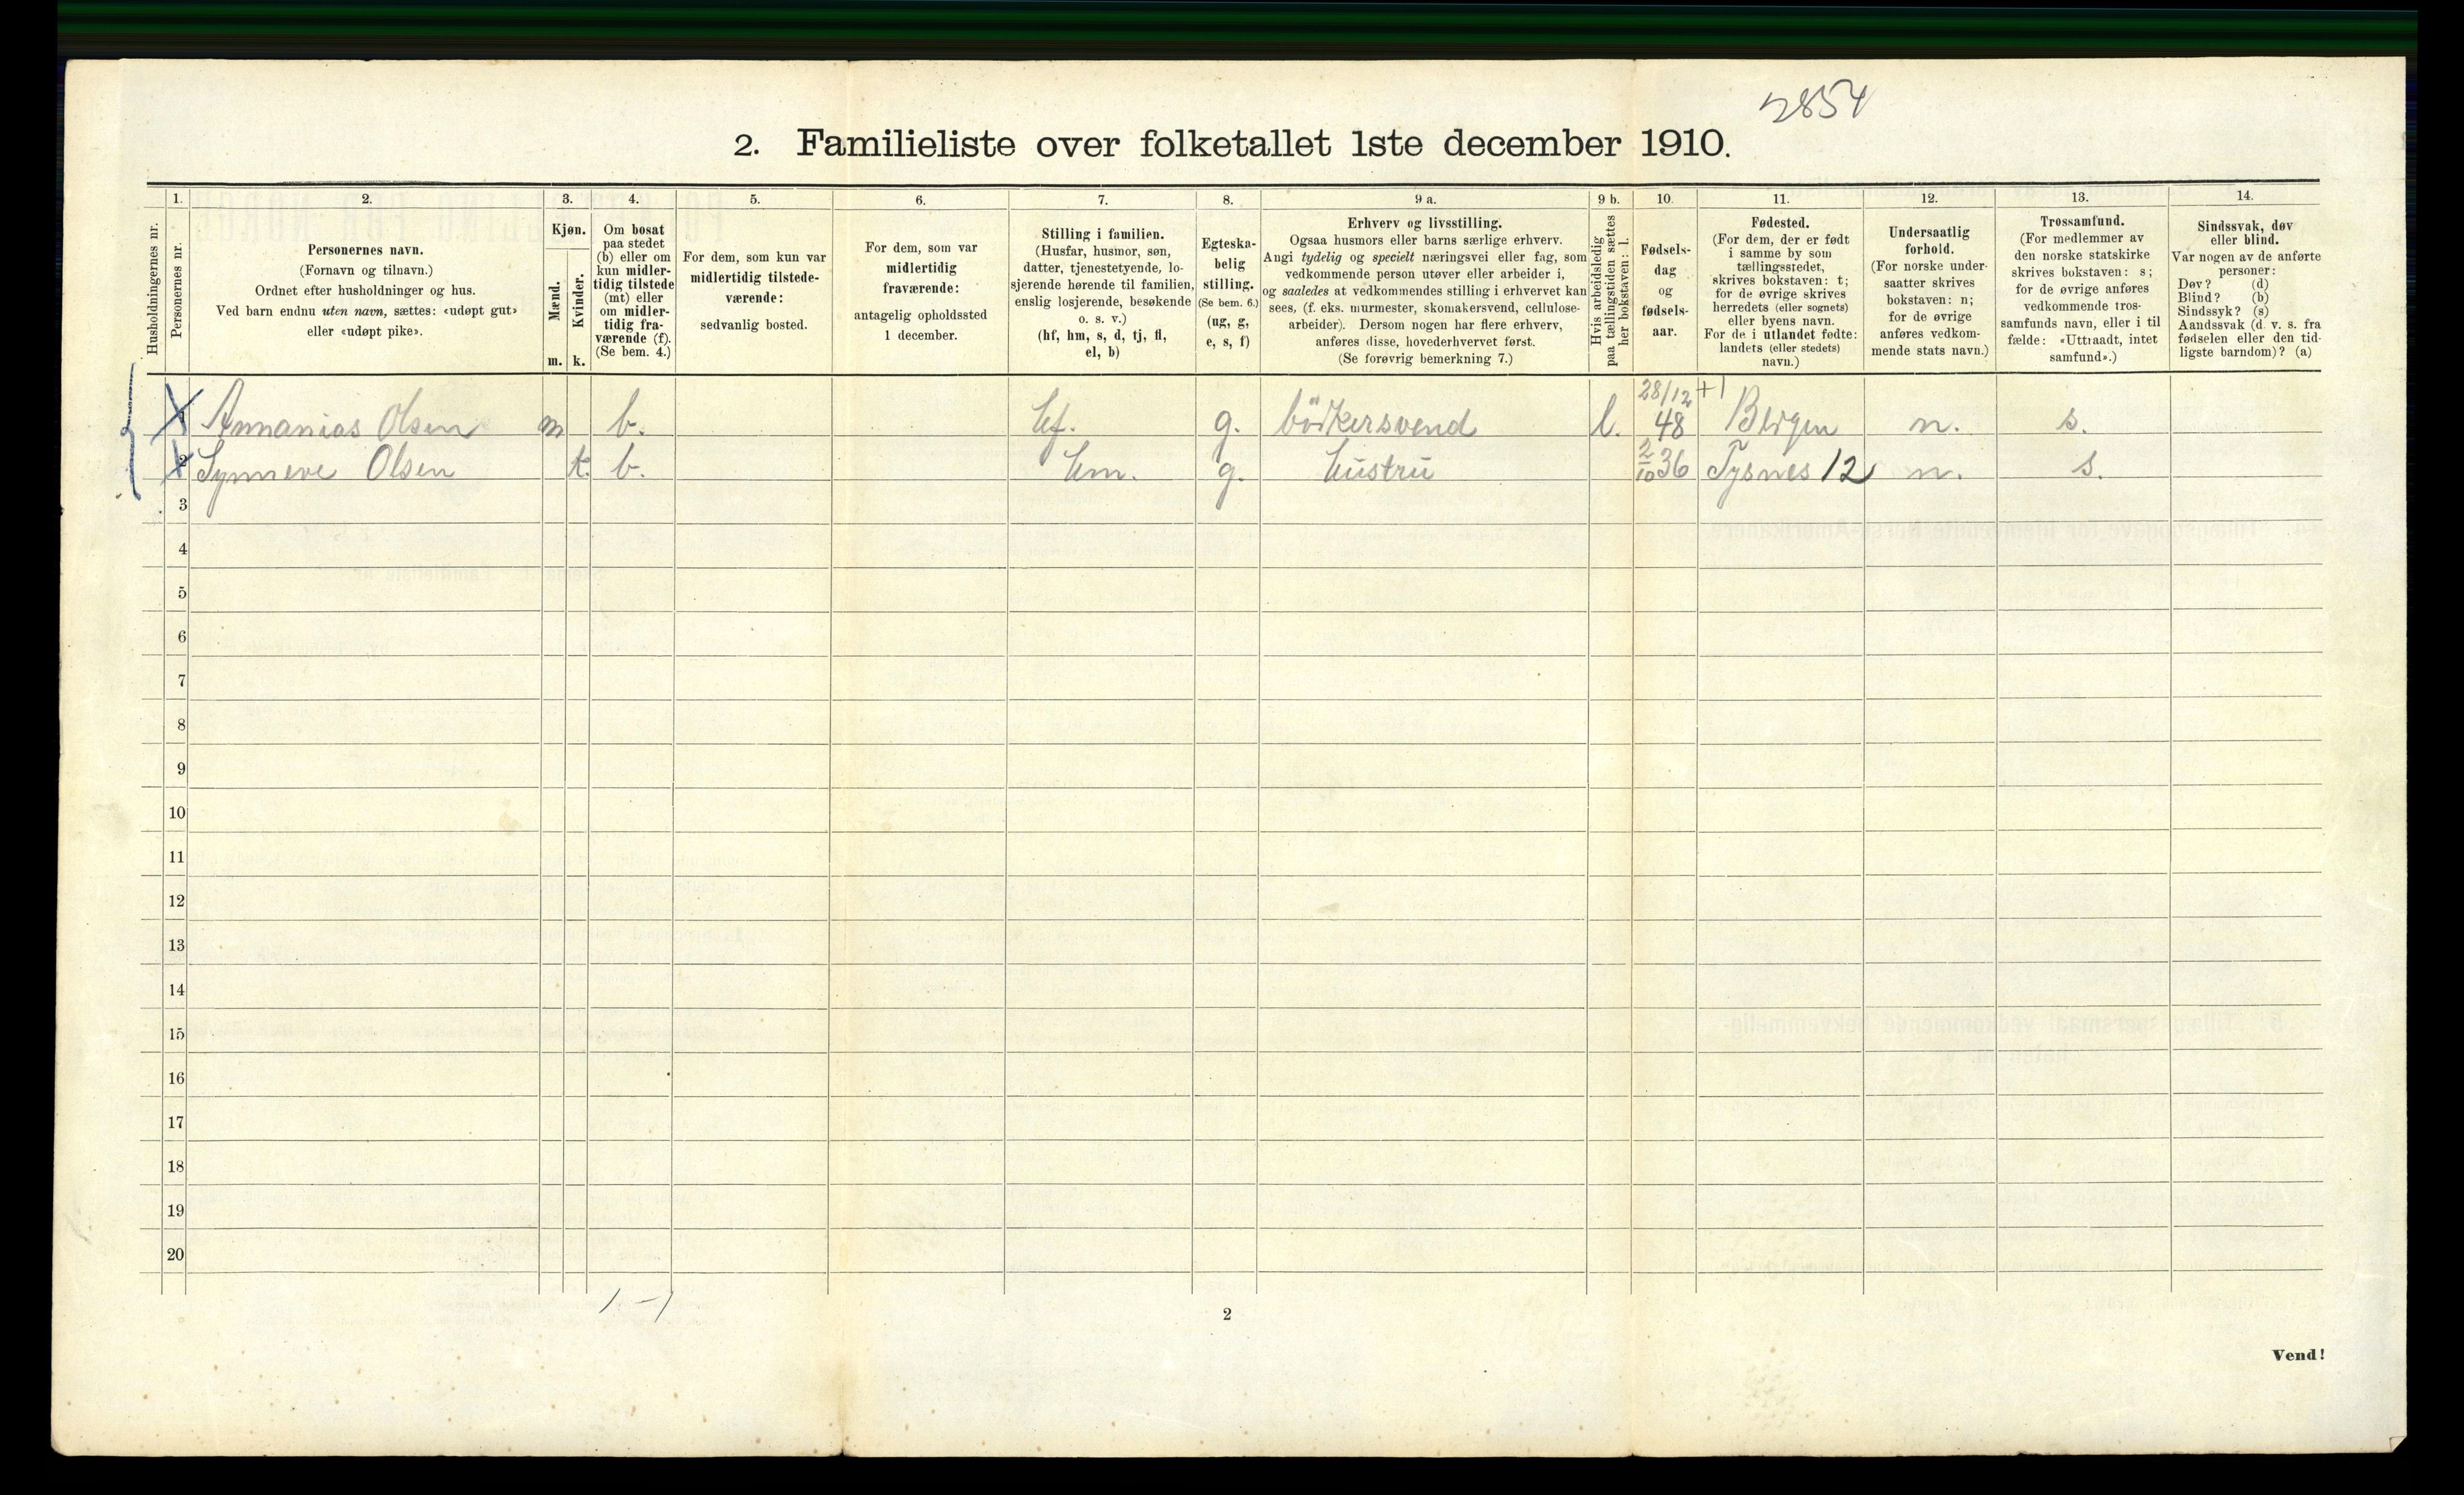 2854
2. Familieliste over folketallet 1ste december 1910.
Husholdningernes nr.
1.
Personernes nr.
2.
Personernes navn.
(Fornavn og tilnavn.)
Ordnet efter husholdninger og hus.
Ved barn endnu uten navn, sættes: «udøpt gut»
eller «udøpt pike».
3.
Kjøn.
Mænd.
m.
Kvinder.
k.
4.
Om bosat
paa stedet
(b) eller om
kun midler-
tidig tilstede
(mt) eller
om midler-
tidig fra-
værende (f).
(Se bem. 4.)
5.
For dem, som kun var
midlertidig tilstede-
værende:
sedvanlig bosted.
6.
For dem, som var
midlertidig
fraværende:
antagelig opholdssted
1 december.
7.
Stilling i familien.
(Husfar, husmor, søn,
datter, tjenestetyende, lo-
sjerende hørende til familien,
enslig losjerende, besøkende
o. s. v.)
(hf, hm, s, d, tj, fl,
el, b)
8.
Egteska-
belig
stilling.
(Se bem. 6.)
(ug, g,
e, s, f)
9 a.
Erhverv og livsstilling.
Ogsaa husmors eller barns særlige erhverv.
Angi tydelig og specielt næringsvei eller fag, som
vedkommende person utøver eller arbeider i,
og saaledes at vedkommendes stilling i erhvervet kan
sees, (f. eks. murmester, skomakersvend, cellulose-
arbeider). Dersom nogen har flere erhverv,
anføres disse, hovederhvervet først.
(Se forøvrig bemerkning 7.)
9 b.
Hvis arbeidsledig
paa tællingstiden sættes
her bokstaven: l.
10.
Fødsels-
dag
og
fødsels-
aar.
11.
Fødested.
(For dem, der er født
i samme by som
tællingsstedet,
skrives bokstaven: t;
for de øvrige skrives
herredets (eller sognets)
eller byens navn.
For de i utlandet fødte:
landets (eller stedets)
navn.)
12.
Undersaatlig
forhold.
(For norske under-
saatter skrives
bokstaven: n;
for de øvrige
anføres vedkom-
mende stats navn.)
13.
Trossamfund.
(For medlemmer av
den norske statskirke
skrives bokstaven: s;
for de øvrige anføres
vedkommende tros-
samfunds navn, eller i til
fælde: «Uttraadt, intet
samfund».)
14.
Sindssvak, døv
eller blind.
Var nogen av de anførte
personer:
Døv? (d)
Blind? (b)
Sindssyk? (s)
Aandssvak (d. v. s. fra
fødselen eller den tid-
ligste barndom)? (a)
1 Annanias Olsen m b. hf. g. bödkersvend l. 28/12 48 +1 Bergen n. s.
2 Synneve Olsen k. b. hm. g. hustru 2/10 36 Tysnes 12 n. s.
3
4
5
6
7
8
9
10
11
12
13
14
15
16
17
18
19
20
1 - 1
2
Vend!